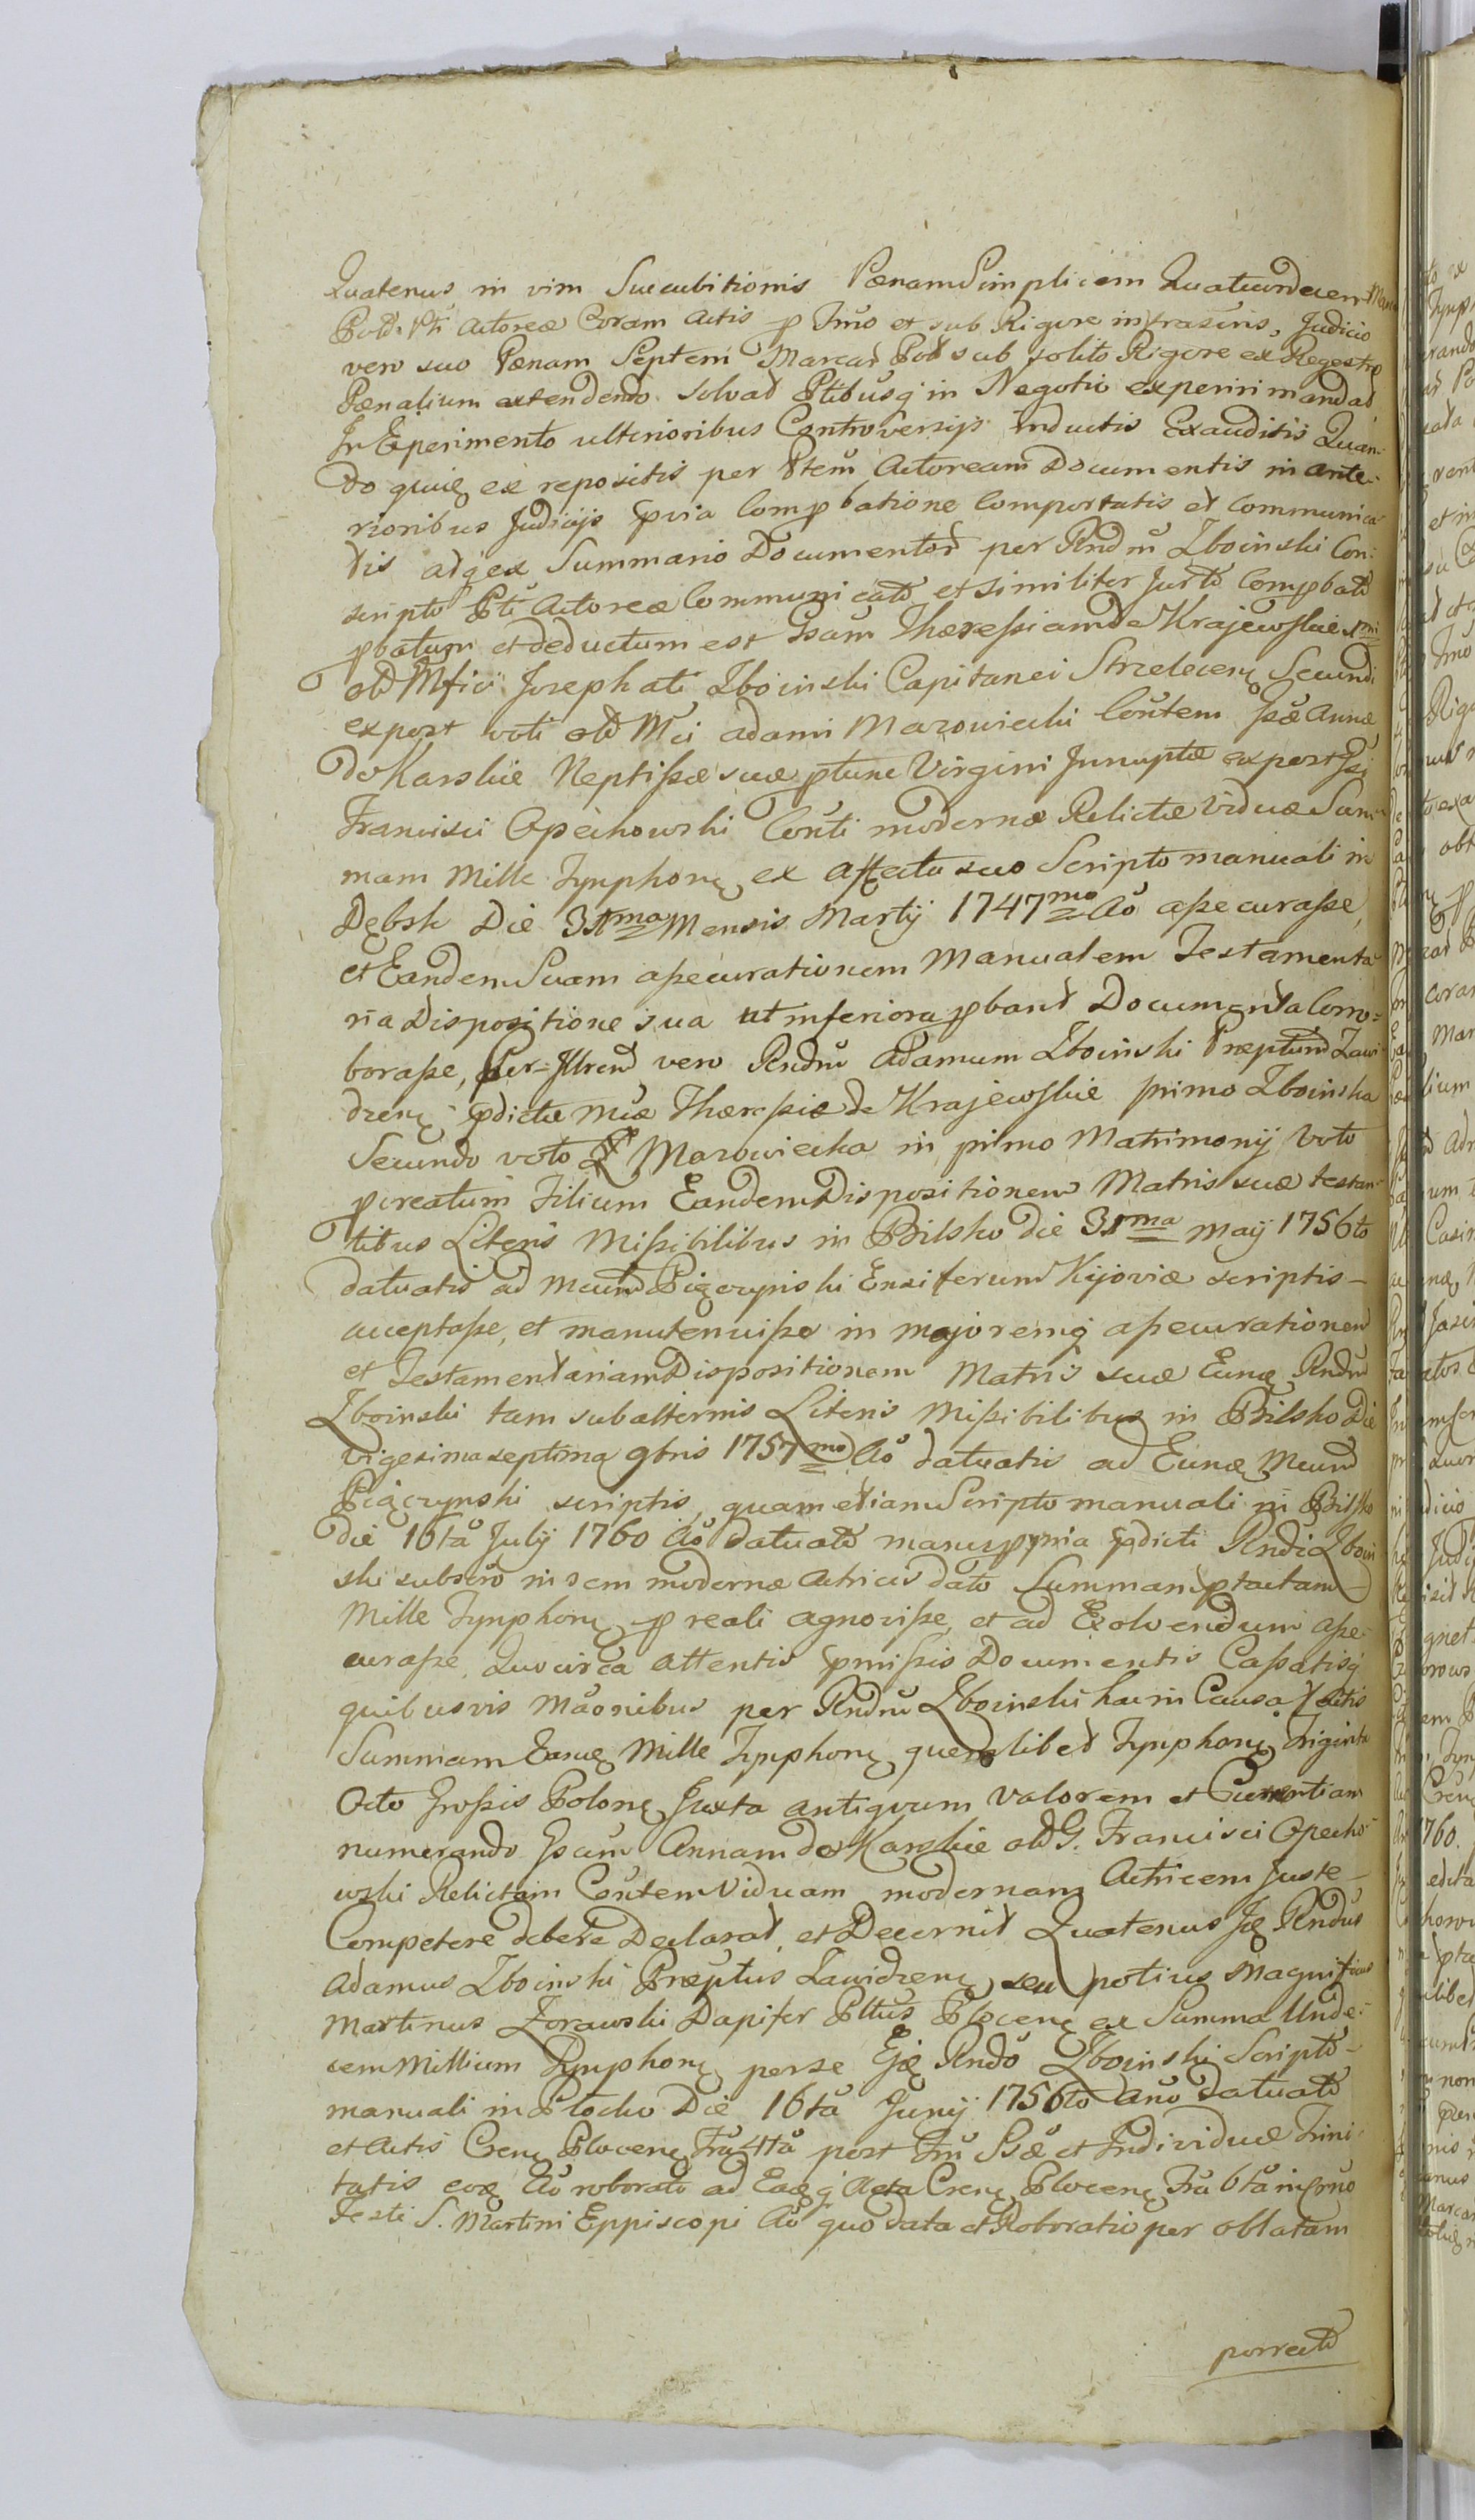 Quatenus in vim Succubitionis Pænam Simplicem Quatuordecem Marc
Pol. Pti Actoreæ Coram Actis p Imo et sub Rigore infrascris, Judicio
vero suo Pænam Septem Marcar Pol sub solito Rigore ex Regestro
Pænalium extendendo solvat Ptibusq in Negotio experiri mandat
In Experimento ulterioribus Controversijs inductis Exauditis Quan-
do quidem ex repositis per Ptem Actoream Documentis in ante-
rioribus Judicijs pvia Compbatione Comportatis et Communica-
tis atq ex Summario Documentor per Rndm Zboinski Con-
scripto Pti Actoreæ Communicato et similiter Jurto Compbato
pbatum et deductum est Gsam Theressiam de Krajewskie 1mi
olim Mfici Josephati Zboinski Capitanei Strzelecen Secundi
expost voti olim Mci Adami Mazowiecki Coutem Gsæ Annæ
de Karskie Neptissæ suæ ptunc Virgini Innuptæ expost Gsi
Francisci Opechowski Conti modernæ Relictæ Viduæ Sum-
mam Mille Tynphon ex affectu suo Scripto manuali in
Dębsk Die 31ma Mensis Martij 1747mo Ao assecurasse,
et Eandem Suam assecurationem Manualem Testamenta-
ria Dispositione sua ut inferiora pbant Documenta Corro-
borasse, Per-Illrem vero Rndm Adamum Zboinski Præptum Zawi-
dzen pdictæ Mcæ Theressiæ de Krajewskie primo Zboinska
Secundo voto Mazowiecka in primo Matrimonij Voto
pcreatum Filium Eandem Dispositionem Matris suæ testan-
tibus Literis Missibilibus in Bilsko die 31ma Maij 1756to
datuatis ad Mcum Pigczynski Ensiferum Kijoviæ scriptis
acceptasse, et manutenuisse in majoremq assecurationem
et Testamentariam Dispositionem Matris suæ Eund Rndm
Zboinski tam subalternis Literis Missibilibus in Bilsko Die
vigesima septima 9bris 1757mo Ao datuatis ad Eund Mcum
Pigczynski scriptis, quam etiam Scripto manuali in Bilsko
die 16ta July 1760 Ao datuato manu ppria pdicti Rndi Zboin
ski subscro in rem modernæ Actricis dato Summam ptactam
Mille Tynphon p reali agnovisse, et ad Exolvendum asse-
curasse, Quocirca attentis pmissis Documentis Cassatisq
quibusvis Mãonibus per Rndm Zboinski hac in Causa factis
Summam Eand Mille Tynphon quemlibet Tynphon Triginta
Octo Grossis Polon Juxta antiquum valorem et Currentiam
numerando Gsam Annam de Karskie olim G. Francisci Opecho-
wski Relictam Coutem Viduam modernam Actricem Juste
Competere debere Declarat, et Decernit Quatenus Id Rndus
Adamus Zboinski Præptus Zawidzen seu potius Magnificus
Martinus Zorawski Dapifer Pltus Plocen ex Summa Unde-
cem Millium Tynphon per se Ejd Rndo Zboinski Scripto
manuali in Plocko Die 16ta Junij 1756to Ano Datuato
et Actis Cren Plocen Fra 4ta post Fm Ssæ et Individuæ Trini-
tatis eod Ao roborato ad Eadq Acta Cren Plocen Fra 6ta in crno
Festi S. Martini Eppiscopi Ao quo data et Roboratio per oblatam
porrecto